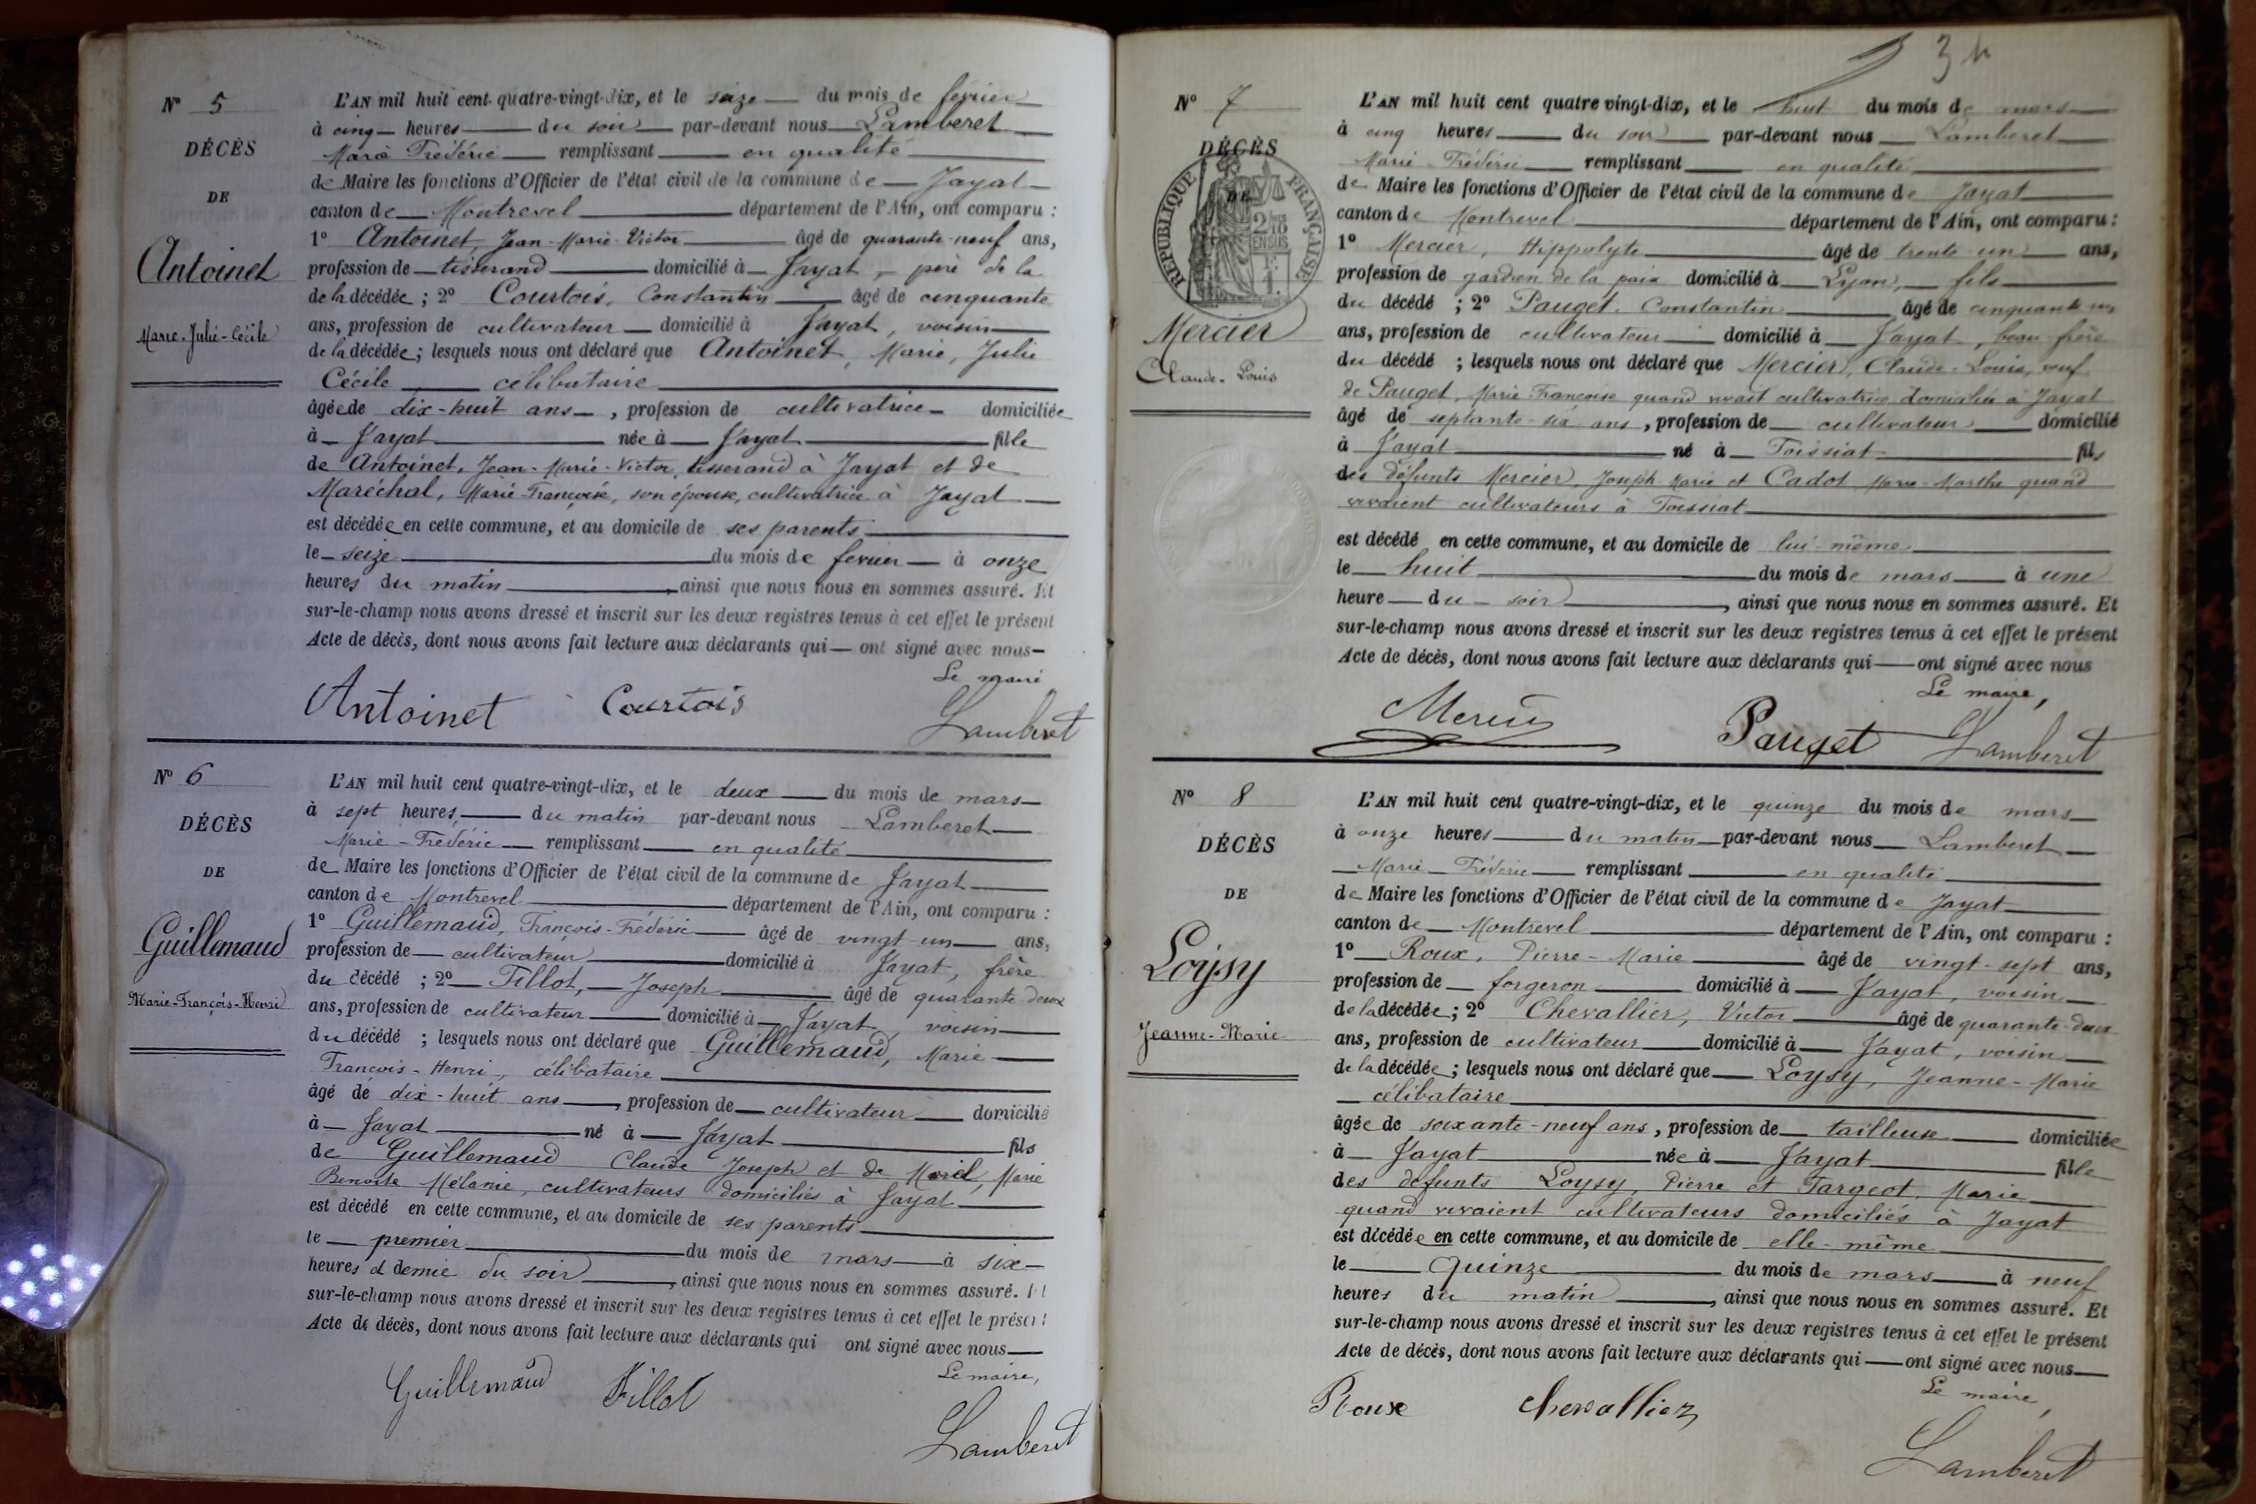 N° 5
DÉCÈS
DE
Antoinet
Marie-Julie-Cécile
L'AN mil huit cent quatre-vingt-dix, et le seize du mois de février
à cinq heures du soir par-devant nous Lamberet
Marie Frédéric remplissant en qualité
de Maire les fonctions d'Officier de l'état civil de la commune de Jayat
canton de Montrevel département de l'Ain, ont comparu :
1° Antoinet, Jean-Marie-Victor âgé de quarante-neuf ans,
profession de tisserand domicilié à Jayat, père de la
de la décédée ; 2° Courtois, Constantin âgé de cinquante
ans, profession de cultivateur domicilié à Jayat, voisin
de la décédée ; lesquels nous ont déclaré que Antoinet, Marie, Julie
Cécile célibataire
âgée de dix-huit ans, profession de cultivatrice domiciliée
à Jayat née à Jayat fille
de Antoinet, Jean-Marie-Victor, tisserand à Jayat et de
Maréchal, Marie-Françoise, son épouse, cultivatrice à Jayat
est décédée en cette commune, et au domicile de ses parents
le seize du mois de fevrier à onze
heures du matin, ainsi que nous nous en sommes assuré. Et
sur-le-champ nous avons dressé et inscrit sur les deux registres tenus à cet effet le présent
Acte de décès, dont nous avons fait lecture aux déclarants qui ont signé avec nous
Le maire
Antoinet Courtois Lamberet
N° 6
DÉCÈS
DE
Guillemaud
Marie-François-Henri
L'AN mil huit cent quatre-vingt-dix, et le deux du mois de mars
à sept heures, du matin par-devant nous Lamberet
Marie-Frédéric remplissant en qualité
de Maire les fonctions d'Officier de l'état civil de la commune de Jayat
canton de Montrevel département de l'Ain, ont comparu :
1° Guillemaud, François-Frédéric âgé de vingt-un ans,
profession de cultivateur domicilié à Jayat, frère
du décédé ; 2° Tillot, Joseph âgé de quarante deux
ans, profession de cultivateur domicilié à Jayat, voisin
du décédé ; lesquels nous ont déclaré que Guillemaud, Marie
François-Henri, célibataire
âgé de dix-huit ans, profession de cultivateur domicilié
à Jayat né à Jayat fils
de Guillemaud Claude Joseph et de Morel, Marie
Benoite Mélanie, cultivateurs domiciliés à Jayat
est décédé en cette commune, et au domicile de ses parents
le premier du mois de mars à six
heures et demie du soir, ainsi que nous nous en sommes assuré. Et
sur-le-champ nous avons dressé et inscrit sur les deux registres tenus à cet effet le présent
Acte de décès, dont nous avons fait lecture aux déclarants qui ont signé avec nous
Le maire,
Guillemaud Tillot Lamberet
N° 7
DÉCÈS
DE
RÉPUBLIQUE FRANÇAISE
Mercier
Claude-Louis
L'AN mil huit cent quatre vingt-dix, et le huit du mois de mars
à cinq heures du soir par-devant nous Lamberet
Marie-Frédéric remplissant en qualité
de Maire les fonctions d'Officier de l'état civil de la commune de Jayat
canton de Montrevel département de l'Ain, ont comparu :
1° Mercier, Hippolyte âgé de trente-un ans,
profession de gardien de la paix domicilié à Lyon, fils
du décédé ; 2° Pauget, Constantin âgé de cinquante un
ans, profession de cultivateur domicilié à Jayat, beau-frère
du décédé ; lesquels nous ont déclaré que Mercier, Claude-Louis, veuf
de Pauget, Marie Françoise quand vivait cultivatrice domiciliée à Jayat
âgé de septante-six ans, profession de cultivateur domicilié
à Jayat né à Foissiat fils
des défunts Mercier, Joseph Marie et Cadot Marie-Marthe quand
vivaient cultivateurs à Foissiat
est décédé en cette commune, et au domicile de lui-même
le huit du mois de mars à une
heure du soir, ainsi que nous nous en sommes assuré. Et
sur-le-champ nous avons dressé et inscrit sur les deux registres tenus à cet effet le présent
Acte de décès, dont nous avons fait lecture aux déclarants qui ont signé avec nous
Le maire,
Mercier Pauget Lamberet
N° 8
DÉCÈS
DE
Loysy
Jeanne-Marie
L'AN mil huit cent quatre-vingt-dix, et le quinze du mois de mars
à onze heures du matin par-devant nous Lamberet
Marie-Frédéric remplissant en qualité
de Maire les fonctions d'Officier de l'état civil de la commune de Jayat
canton de Montrevel département de l'Ain, ont comparu :
1° Roux, Pierre-Marie âgé de vingt-sept ans,
profession de forgeron domicilié à Jayat, voisin
de la décédée ; 2° Chevallier, Victor âgé de quarante-deux
ans, profession de cultivateur domicilié à Jayat, voisin
de la décédée ; lesquels nous ont déclaré que Loysy, Jeanne-Marie
célibataire
âgée de soixante-neuf ans, profession de tailleuse domiciliée
à Jayat née à Jayat fille
des défunts Loysy, Pierre et Targeot, Marie
quand vivaient cultivateurs domiciliés à Jayat
est décédée en cette commune, et au domicile de elle-même
le Quinze du mois de mars à neuf
heures du matin, ainsi que nous nous en sommes assuré. Et
sur-le-champ nous avons dressé et inscrit sur les deux registres tenus à cet effet le présent
Acte de décès, dont nous avons fait lecture aux déclarants qui ont signé avec nous
Le maire,
Roux Chevallier Lamberet